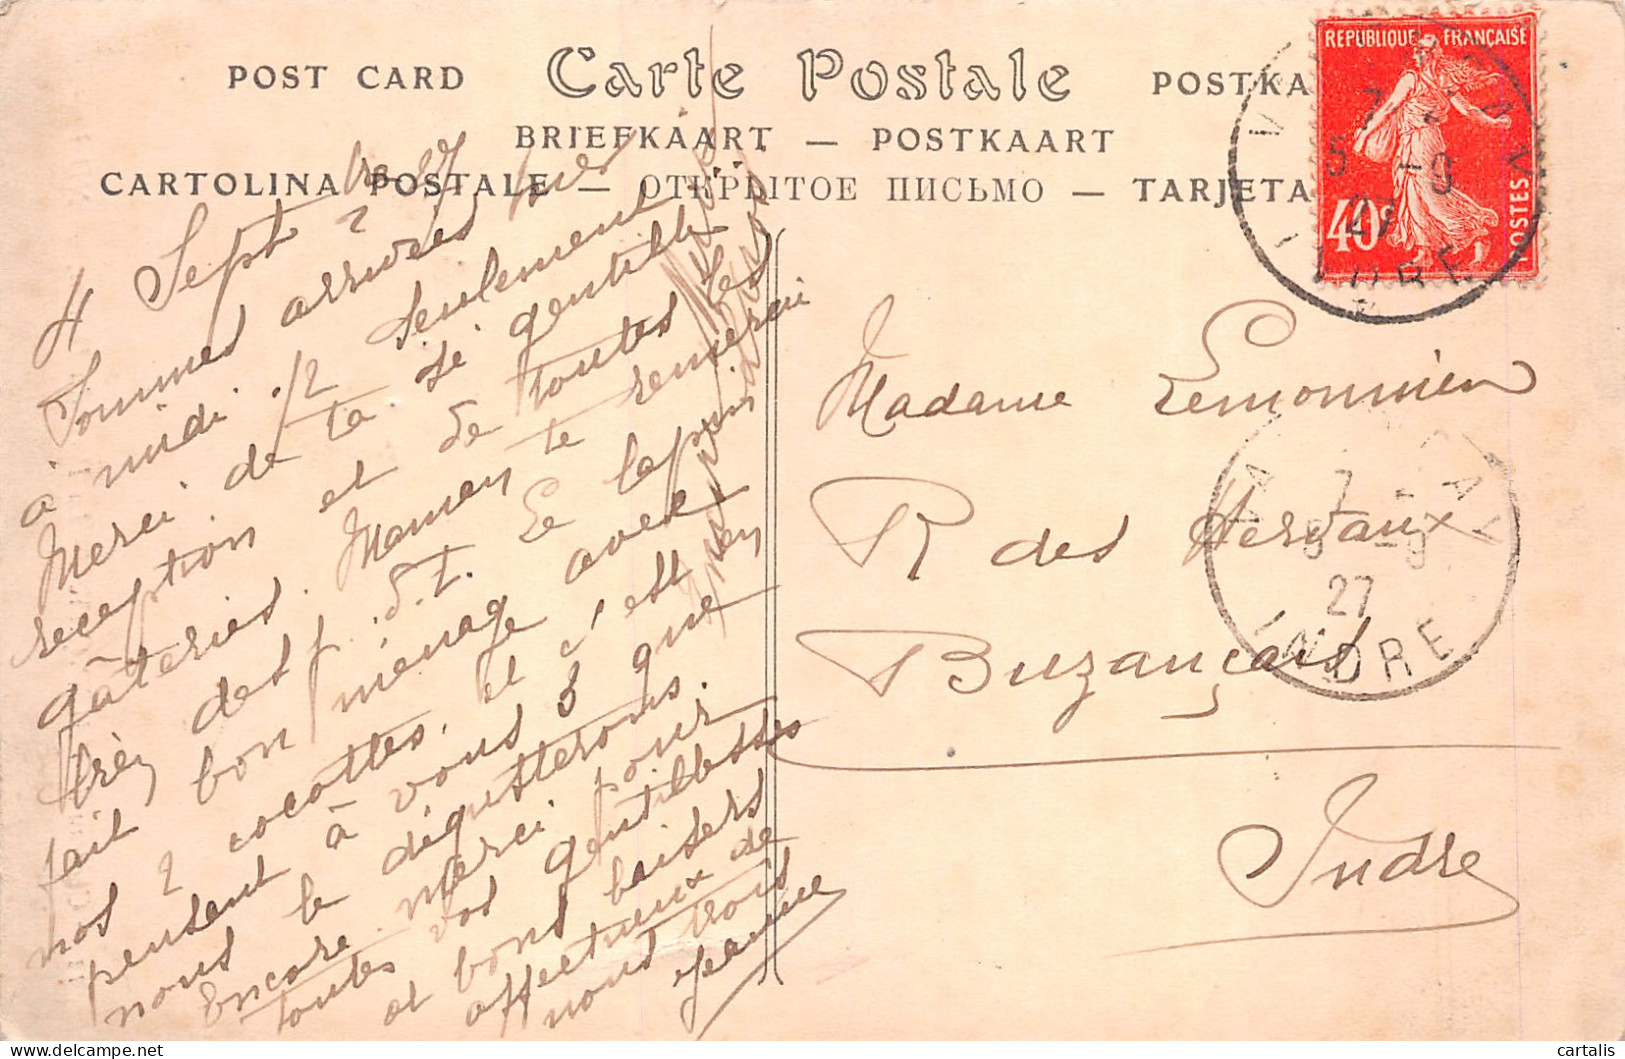 POST CARD Carte Postale POSTKA
BRIEFKAART — POSTKAART
CARTOLINA POSTALE — ОТКРЫТОЕ ПИСЬМО — TARJETA
REPUBLIQUE FRANÇAISE
40c
POSTES
7
5 -9
27
INDRE
4 Sept 27
Sommes arrivées hier
à midi 1/2 seulement
Merci de ta si gentille
réception et de toutes les
gâteries. Maman te remercie
très des p. d. t. Le lapin
fait bon ménage avec
nos 2 cocottes. et c'est en
pensant à vous 3 que
nous le dégusterons.
Encore merci pour
toutes vos gentillesses
et bons baisers
affectueux de
nous trois
Jeanne
Madame Lemonnier
R des Hervaux
Buzançais
Indre
7
5 -9
27
INDRE
cartalis